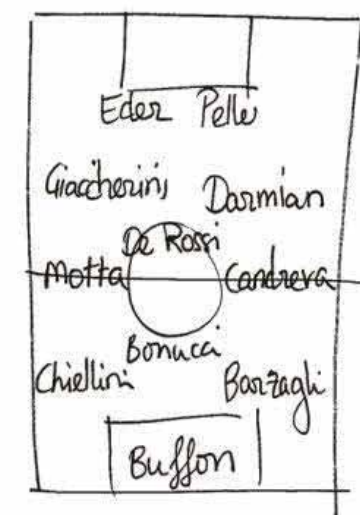 Eder Pellè
Giaccherini Darmian
De Rossi
Motta Candreva
Bonucci
Chiellini Barzagli
Buffon